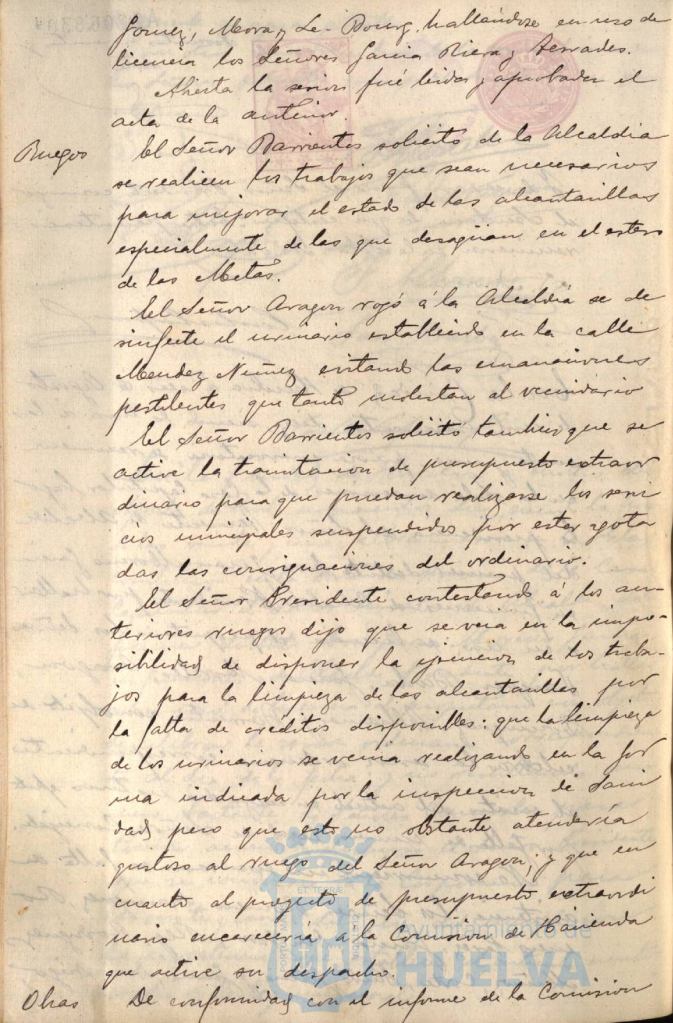 Gomez, Mora, y Le-Bourg, hallándose en uso de
licencia los Señores Garcia Riera y Terrades.
Abierta la sesion fué leida y aprobada el
acta de la anterior.
Ruegos
El Señor Barrientos solicitó de la Alcaldia
se realicen los trabajos que sean necesarios
para mejorar el estado de las alcantarillas
especialmente de las que desaguan en el estero
de las Metas.
El Señor Aragon rogó á la Alcaldia se de
sinfecte el urinario establecido en la calle
Mendez Nuñez evitando las emanaciones
pestilentes que tanto molestan al vecindario
El Señor Barrientos solicitó tambien que se
active la tramitacion de presupuesto extraor
dinario para que puedan realizarse los servi
cios municipales suspendidos por estar agota
das las consignaciones del ordinario.
El Señor Presidente contestando á los an-
teriores ruegos dijo que se veia en la impo-
sibilidad de disponer la ejecucion de los traba-
jos para la limpieza de las alcantarillas por
la falta de creditos disponibles: que la limpieza
de los urinarios se venia realizando en la for
ma indicada por la inspeccion de Sani
dad, pero que esto no obstante atenderia
gustoso al ruego del Señor Aragon; y que en
cuanto al proyecto de presupuesto extraordi
nario encareceria a la Comision de Hacienda
que active su despacho.
Obras
De conformidad con el informe de la Comision
Ayuntamiento de
HUELVA